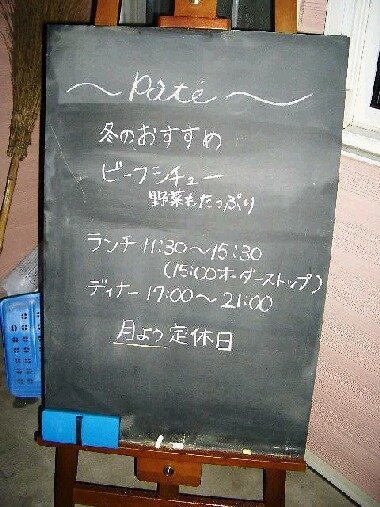 ～ Paté ～
冬のおすすめ
ビーフシチュー
野菜もたっぷり
ランチ 11:30～15:30
(15:00オーダーストップ)
ディナー 17:00～21:00
月よう定休日